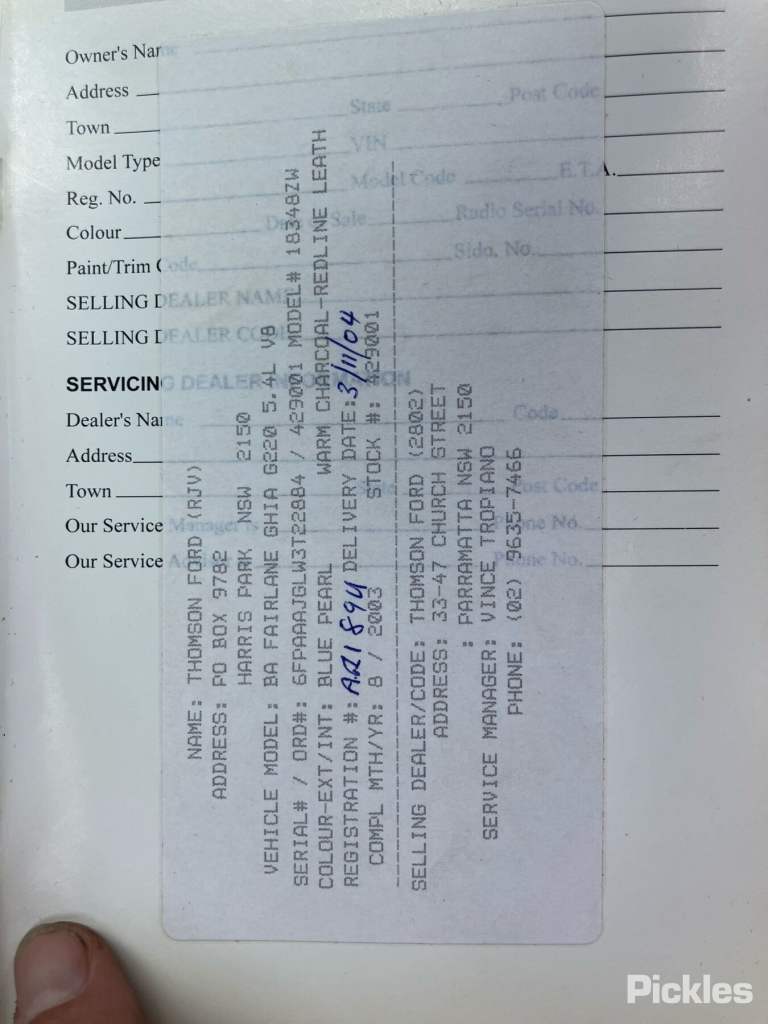 Owner's Name
Address
State
Post Code
Town
VIN
Model Type
Model Code
E.T.A.
Reg. No.
Date Sale
Radio Serial No.
Colour
Sido. No.
Paint/Trim Code
SELLING DEALER NAME
SELLING DEALER CODE
SERVICING DEALER INFORMATION
Dealer's Name
Code
Address
Town
State
Post Code
Our Service Manager is
Phone No.
Our Service Advisor
Phone No.
NAME: THOMSON FORD (RJV)
ADDRESS: PO BOX 9782
HARRIS PARK NSW 2150
VEHICLE MODEL: BA FAIRLANE GHIA G220 5.4L V8
SERIAL# / ORD#: 6FPAAAJGLW3T22884 / 429001 MODEL# 18348ZW
COLOUR-EXT/INT: BLUE PEARL WARM CHARCOAL-REDLINE LEATH
REGISTRATION #: AR189U DELIVERY DATE: 3/11/04
COMPL MTH/YR: 8 / 2003 STOCK #: 429001
SELLING DEALER/CODE: THOMSON FORD (2802)
ADDRESS: 33-47 CHURCH STREET
: PARRAMATTA NSW 2150
SERVICE MANAGER: VINCE TROPIANO
PHONE: (02) 9635-7466
Pickles